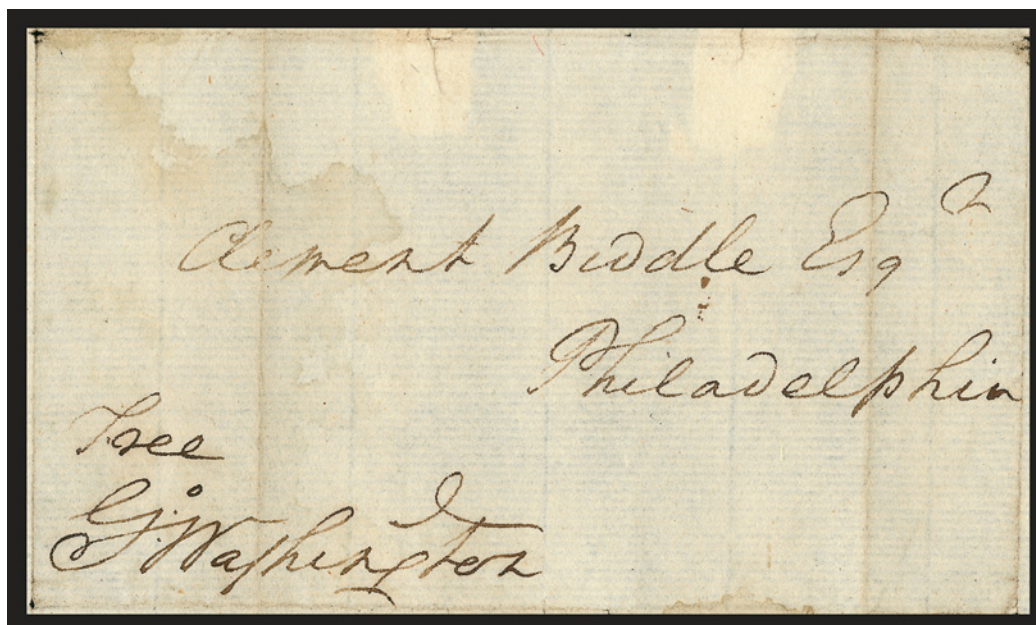 Clement Biddle Esqr
Philadelphia
Free
Go: Washington